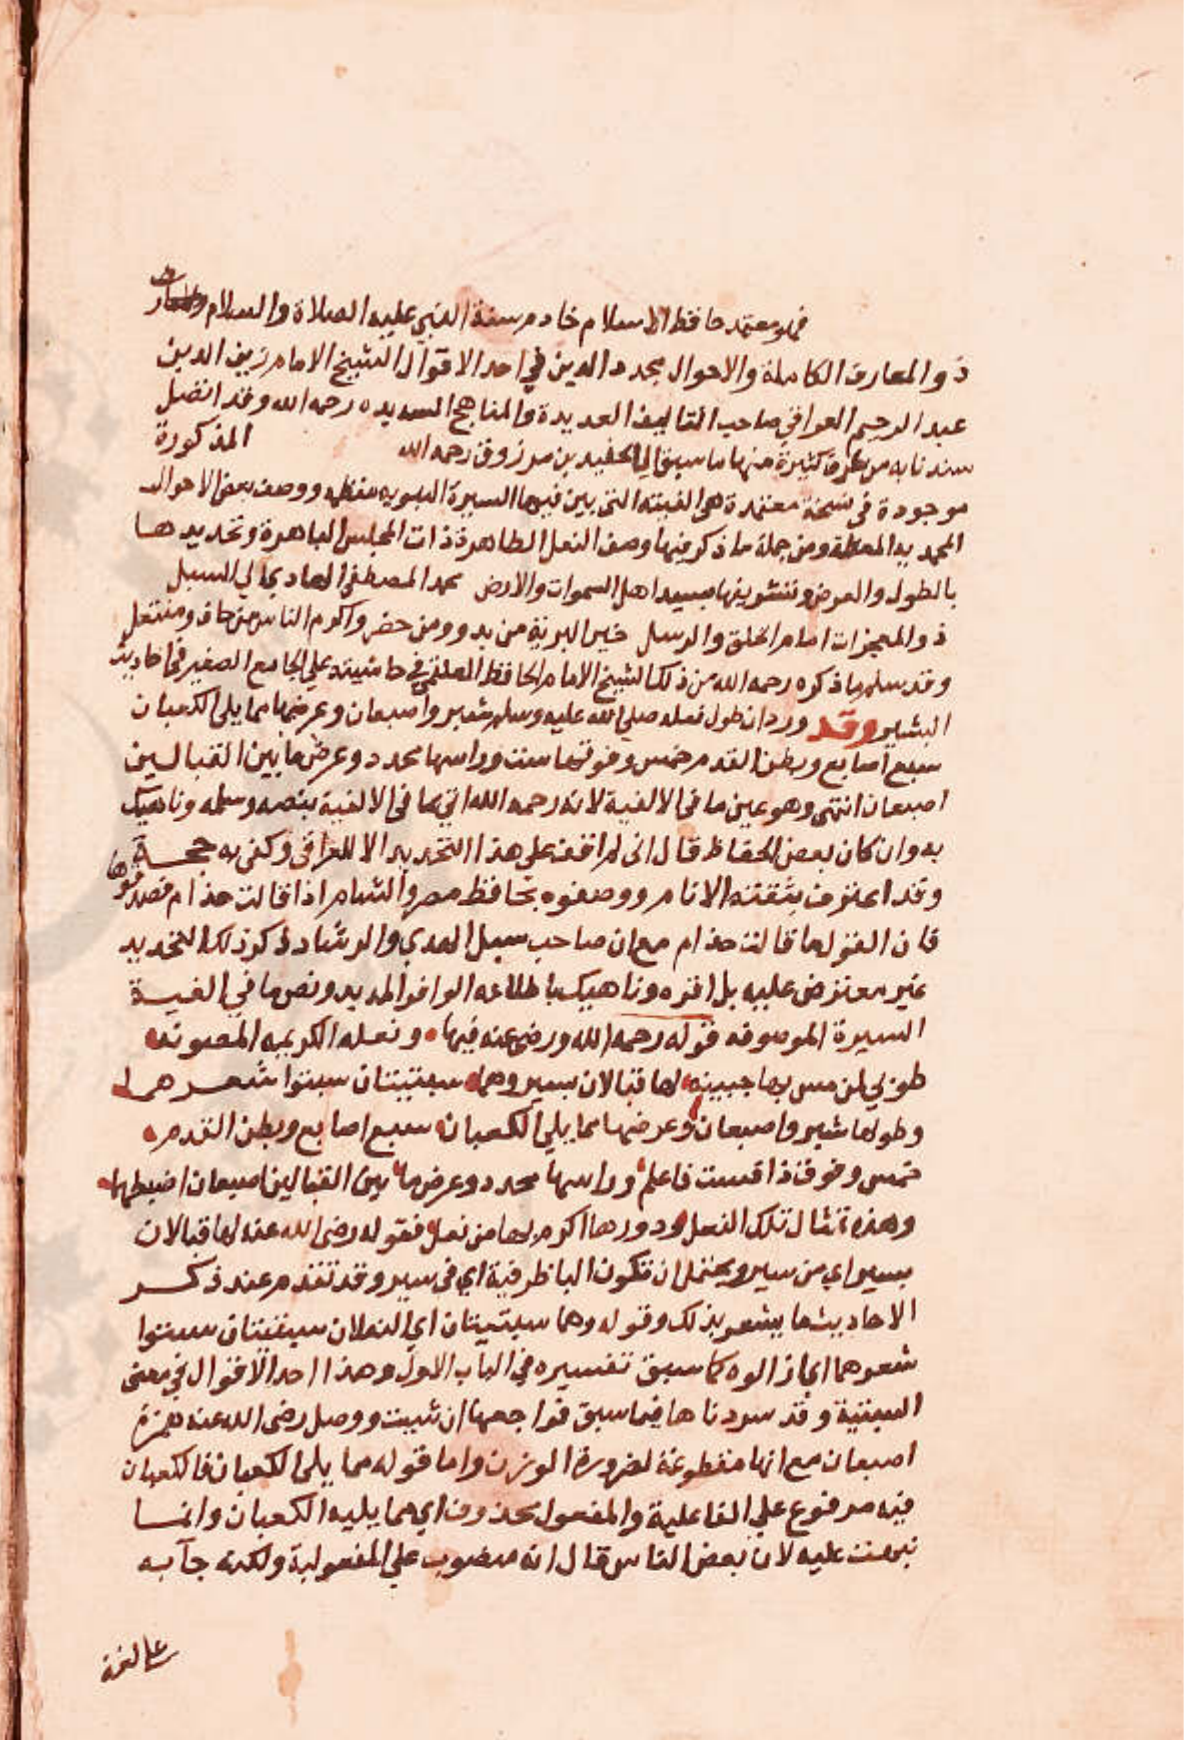 فهو معتمد حافظ الاسلام خادم سنة النبي عليه الصلاة والسلام
ذو المعارف الكاملة والاحوال مجدد الدين في احد الاقوال الشيخ الامام زين الدين
عبد الرحيم العراقي صاحب التاليف العديدة والمناهج السديده رحمه الله وقد اتصل
سندنا به من طرق كثيرة منها ما سبق الى الحفيد بن مرزوق رحمه الله المذكورة
موجودة في نسخة معتمدة هي الفيته التي بين فيها السيرة النبويه ووصف بعض الاحوال
المحمديه المعظمة ومن جملة ما ذكر فيها وصف النعل الطاهرة ذات المجلس الباهرة وتحديدها
بالطول والعرض وتشريفها بسيد اهل السموات والارض محمد المصطفى الهادي الى السبل
ذو المعجزات امام الخلق والرسل خير البرية من بدو ومن حضر واكرم الناس من حاف ومنتعل
وقد سلم ما ذكره رحمه الله من ذلك الشيخ الامام الحافظ العلقمي في حاشيته على الجامع الصغير في احاديث
البشير وقد ورد ان طول نعله صلى الله عليه وسلم شبر واصبعان وعرضها مما يلي الكعبان
سبع اصابع وبطن القدم خمس وفوقها ست وراسها محدد وعرض ما بين القبالين
اصبعان انتهى وهو عين ما في الالفية لانه رحمه الله اتى بما في الالفية بنصه وسلمه وناهيك
به وان كان بعض الحفاظ قال اني لم اقف على هذا التحديد الا للعراقي وكفى به حجة
وقد اعترف بثقته الانام ووصفوه بحافظ مصر والشام اذا قالت حذام فصدقوها
فان القول ما قالت حذام مع ان صاحب سبل الهدى والرشاد ذكر ذلك التحديد
غير معترض عليه بل اقره وناهيك باطلاعه الوافر المديد ونص ما في الفية
السيرة الموصوفه قوله رحمه الله ورضي عنه فيها ونعله الكريمه المصونه
طوبى لمن مس بها جبينه لها قبالان بسير وهما سبتيتان سبتوا شعرهما
وطولها شبر واصبعان وعرضها مما يلي الكعبان سبع اصابع وبطن القدم
خمس وفوق ذا فست فاعلم وراسها محدد وعرض ما بين القبالين اصبعان اضبطهما
وهذه تمثال تلك النعل ودورها اكرم بها من نعل فقوله رضي الله عنه لها قبالان
بسير اي من سير ويحتمل ان تكون البا ظرفية اي في سير وقد تقدم عند ذكر
الاحاديث ما يشعر بذلك وقوله وهما سبتيتان اي النعلان سبتيتان سبتوا
شعرهما اي ازالوه كما سبق تفسيره في الباب الاول وهذا احد الاقوال في معنى
السبتية وقد سردناها فيما سبق فراجعها ان شيت ووصل رضي الله عنه همزة
اصبعان مع انها مقطوعة لضرورة الوزن واما قوله مما يلي الكعبان فالكعبان
فيه مرفوع على الفاعلية والمفعول محذوف اي مما يليه الكعبان وانما
نبهت عليه لان بعض الناس قال انه منصوب على المفعولية ولكنه جآ به
على لغة